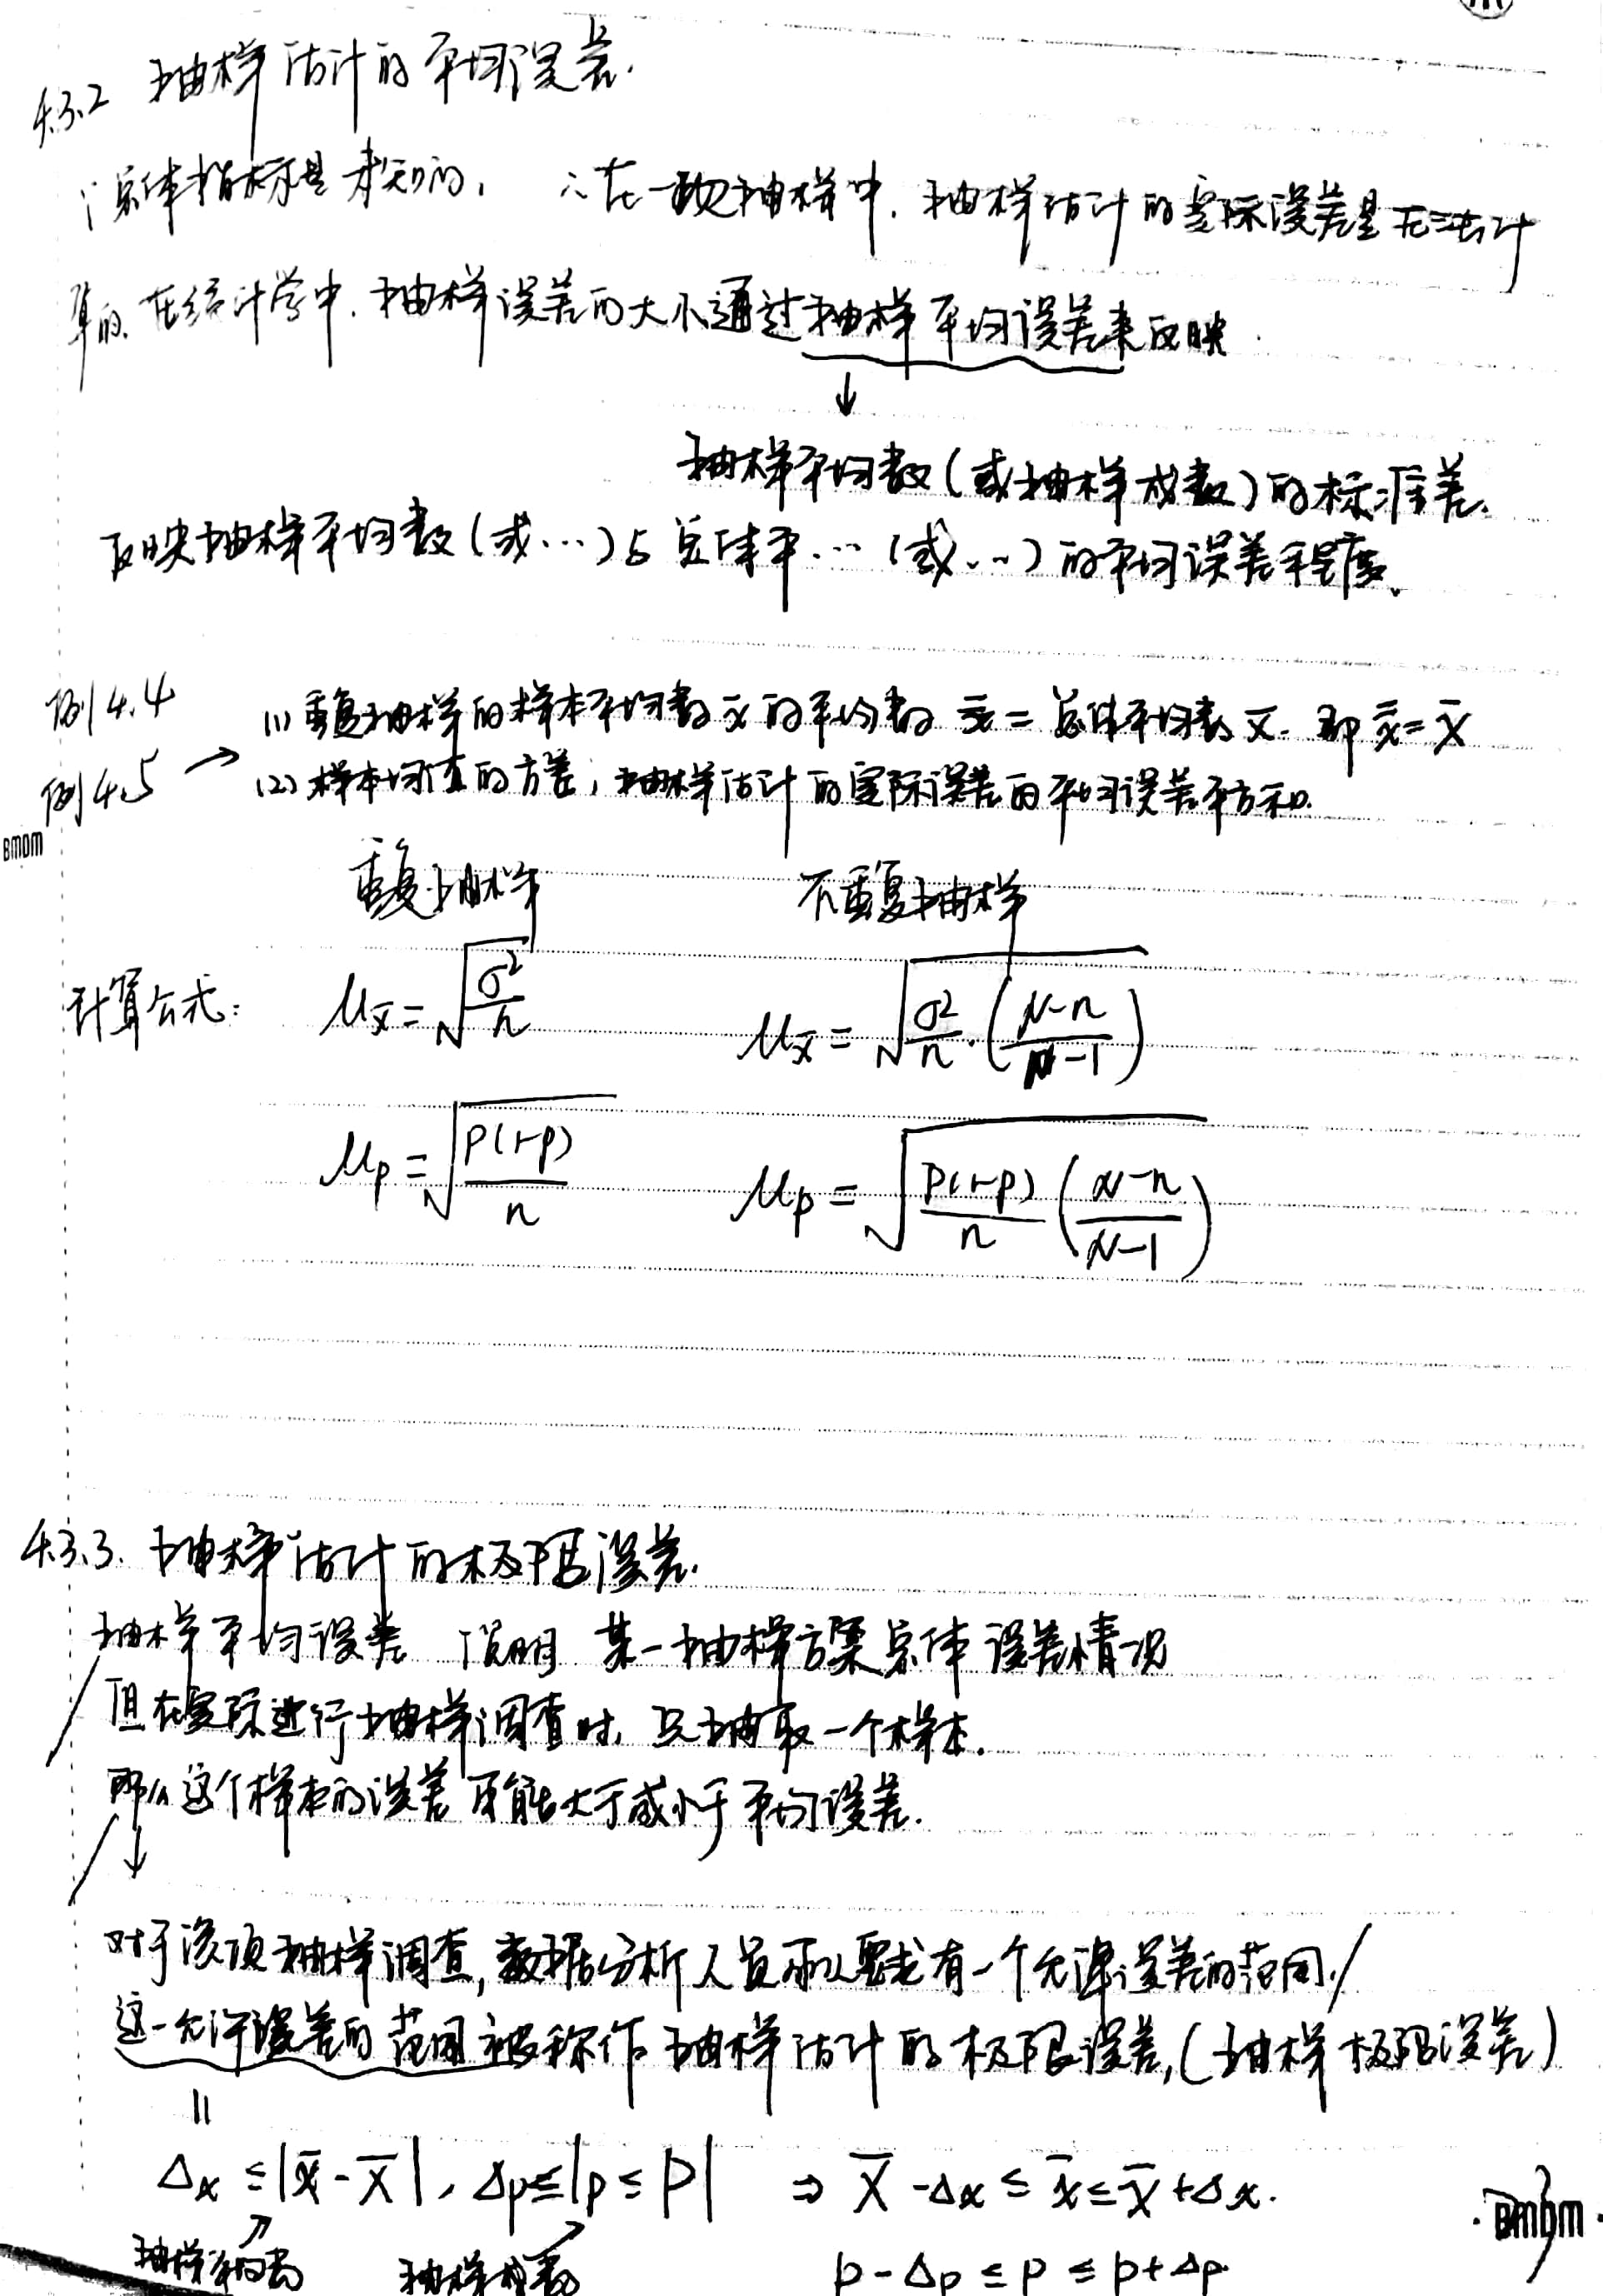 4.3.2 抽样估计的平均误差.
∵总体指标是未知的, ∴在一次抽样中, 抽样估计的实际误差是无法计
算的. 在统计学中, 抽样误差的大小通过抽样平均误差来反映.
↓
抽样平均数(或抽样成数)的标准差.
反映抽样平均数(或…)与总体平…(或…)的平均误差程度.
例4.4
例4.5 →
(1) 重复抽样的样本平均数x̄的平均数 x̿ = 总体平均数 X̄. 即 x̿ = X̄
(2) 样本均值的方差, 抽样估计的实际误差的平均误差平方和.
BMDM
重复抽样 不重复抽样
计算公式: μx̄ = √(σ²/n) μx̄ = √(σ²/n · ((N-n)/(N-1)))
μp = √(P(1-P)/n) μp = √(P(1-P)/n ((N-n)/(N-1)))
4.3.3. 抽样估计的极限误差.
抽样平均误差 说明 某一抽样方案总体误差情况
但在实际进行抽样调查时, 只抽取一个样本.
那么这个样本的误差可能大于或小于平均误差.
↓
对于该项抽样调查, 数据分析人员需要有一个允许误差的范围.
这一允许误差的范围被称作抽样估计的极限误差,(抽样极限误差)
=
Δx ≤ |x̄ - X̄|, Δp ≤ |p ≤ P| ⇒ X̄ - Δx ≤ x̄ ≤ X̄ + Δx.
抽样平均数 抽样成数 p - Δp ≤ P ≤ p + Δp
BMDM